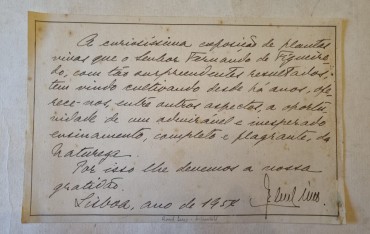 A curiosíssima exposição de plantas
vivas que o Senhor Fernando de Figueire-
do, com tão surpreendentes resultados,
tem vindo cultivando desde há anos, ofe-
rece-nos, entre outros aspectos, a oportu-
nidade de um admirável e inesperado
ensinamento, completo e flagrante, da
Natureza.
Por isso lhe devemos a nossa
gratidão.
Lisboa, ano de 195